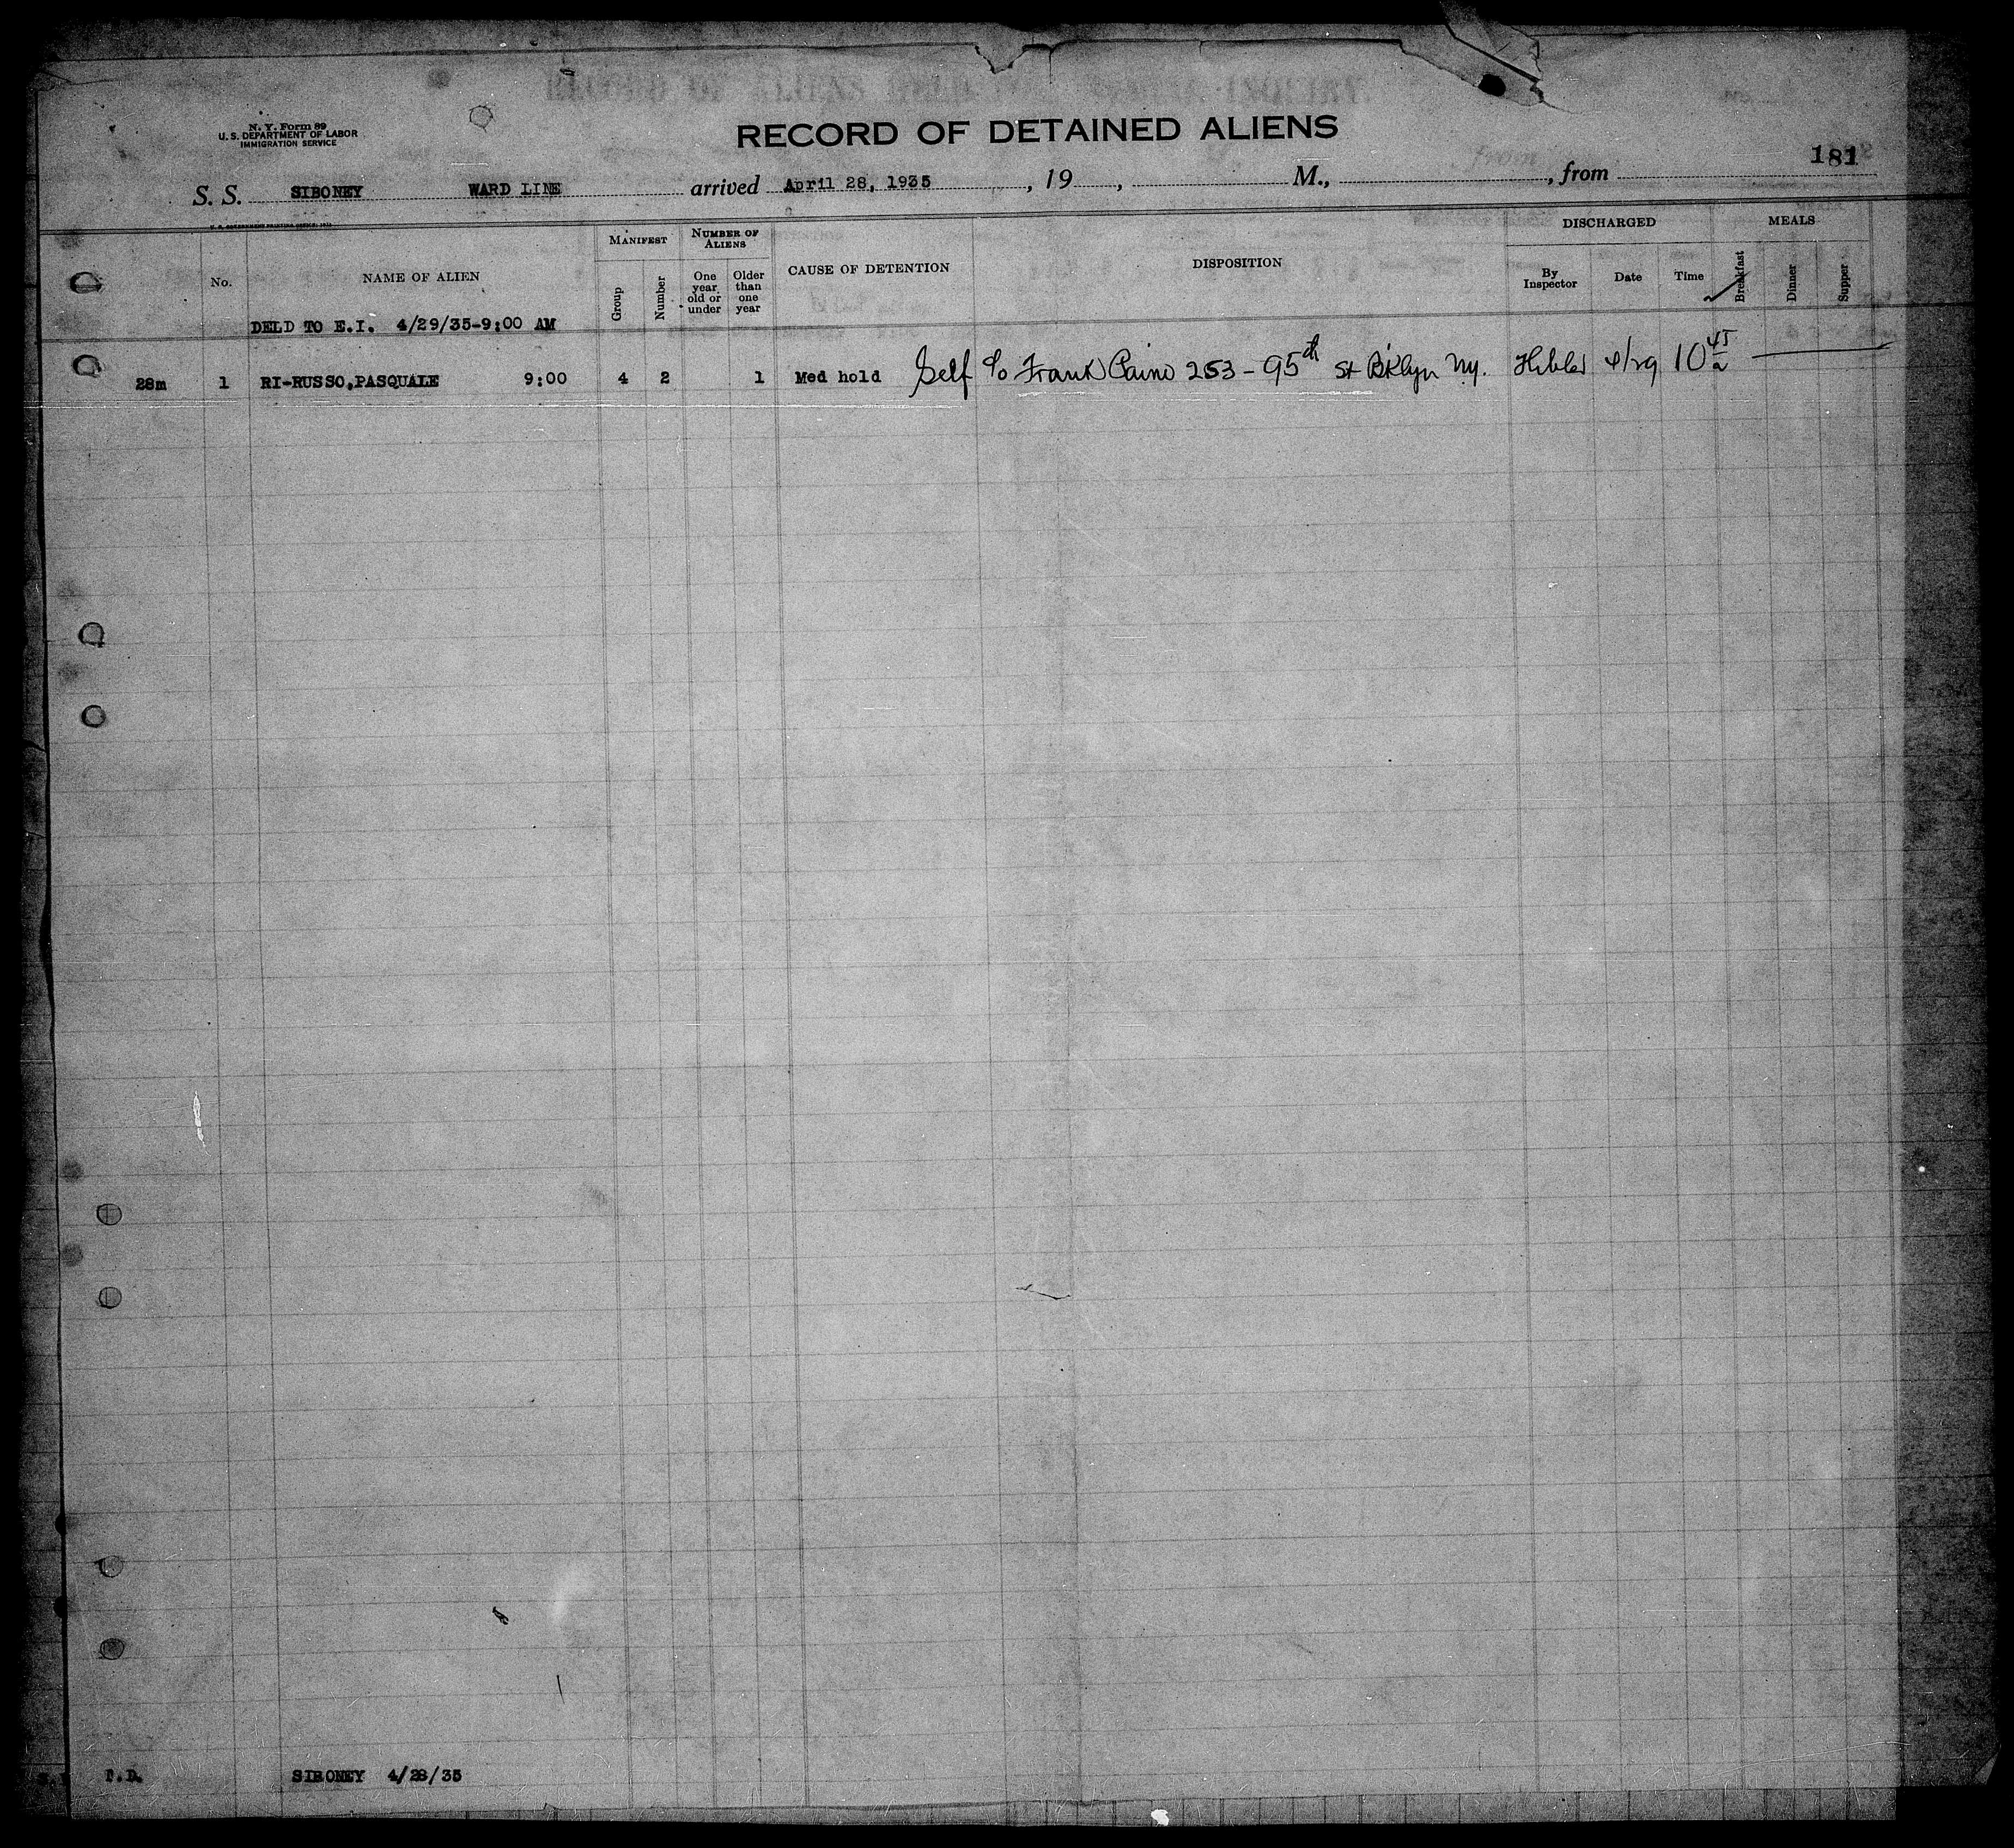 N. Y. Form 89
U. S. DEPARTMENT OF LABOR
IMMIGRATION SERVICE
RECORD OF DETAINED ALIENS
181
S. S. SIBONEY WARD LINE arrived April 28, 1935, 19, M., , from
U. S. GOVERNMENT PRINTING OFFICE
No.
NAME OF ALIEN
MANIFEST
Group
Number
NUMBER OF ALIENS
One year old or under
Older than one year
CAUSE OF DETENTION
DISPOSITION
DISCHARGED
By Inspector
Date
Time
MEALS
Breakfast
Dinner
Supper
DELD TO E.I. 4/29/35-9:00 AM
28m 1 RI-RUSSO,PASQUALE 9:00 4 2 1 Med hold Self c/o Frank Paino 253-95th St Bklyn Ny. 4/29 10 45 a
SIBONEY 4/28/35